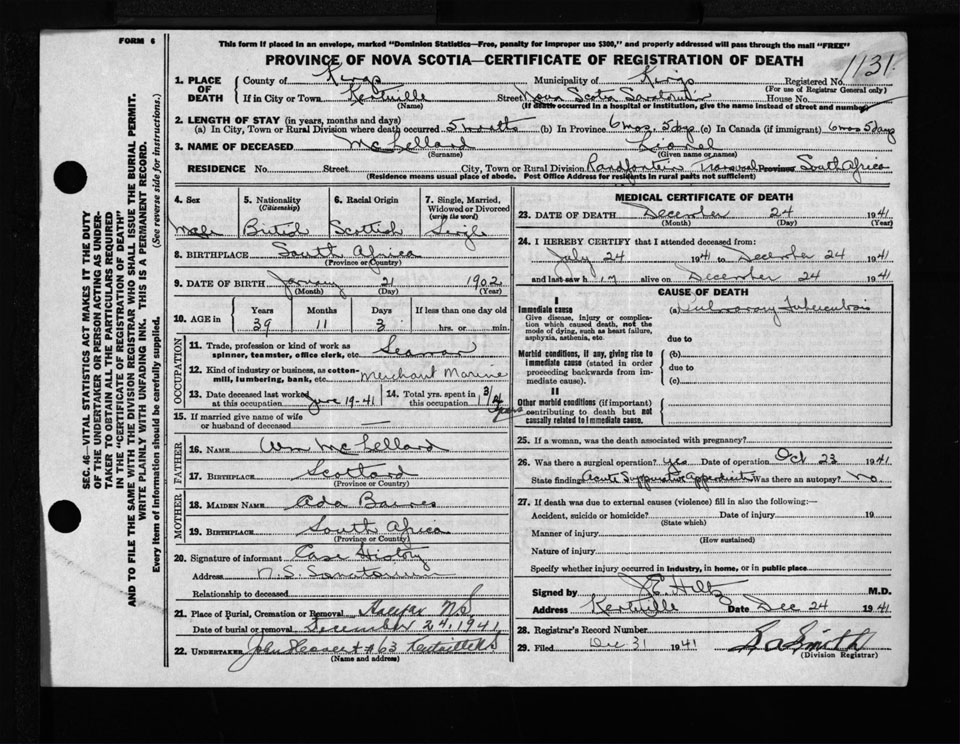 FORM 6
This form if placed in an envelope, marked "Dominion Statistics—Free, penalty for improper use $300," and properly addressed will pass through the mail "FREE"
PROVINCE OF NOVA SCOTIA—CERTIFICATE OF REGISTRATION OF DEATH
1131
SEC. 46—VITAL STATISTICS ACT MAKES IT THE DUTY
OF THE UNDERTAKER OR PERSON ACTING AS UNDER-
TAKER TO OBTAIN ALL THE PARTICULARS REQUIRED
IN THE "CERTIFICATE OF REGISTRATION OF DEATH"
AND TO FILE THE SAME WITH THE DIVISION REGISTRAR WHO SHALL ISSUE THE BURIAL PERMIT.
WRITE PLAINLY WITH UNFADING INK. THIS IS A PERMANENT RECORD.
Every item of Information should be carefully supplied. (See reverse side for instructions.)
1. PLACE OF DEATH
County of Kings Municipality of Kings Registered No.
(For use of Registrar General only)
If in City or Town Kentville Street Nova Scotia Sanatorium House No.
(Name) (If death occurred in a hospital or institution, give the name instead of street and number)
2. LENGTH OF STAY (in years, months and days)
(a) In City, Town or Rural Division where death occurred 5 months (b) In Province 6 mos. 5 dys (c) In Canada (if immigrant) 6 mos 5 days
3. NAME OF DECEASED McLellard Lionel
(Surname) (Given name or names)
RESIDENCE No. Street City, Town or Rural Division Randfontein Transvaal Province South Africa
(Residence means usual place of abode. Post Office Address for residents in rural parts not sufficient)
4. Sex Male
5. Nationality (Citizenship) British
6. Racial Origin Scottish
7. Single, Married, Widowed or Divorced (write the word) Single
8. BIRTHPLACE South Africa
(Province or Country)
9. DATE OF BIRTH January 21 1902
(Month) (Day) (Year)
10. AGE in Years Months Days If less than one day old
39 11 3 hrs. or min.
OCCUPATION
11. Trade, profession or kind of work as spinner, teamster, office clerk, etc. Seaman
12. Kind of industry or business, as cotton-mill, lumbering, bank, etc. Merchant Marine
13. Date deceased last worked at this occupation June 19-41
14. Total yrs. spent in this occupation years
15. If married give name of wife or husband of deceased —
FATHER
16. NAME Wm McLellard
17. BIRTHPLACE Scotland
(Province or Country)
MOTHER
18. MAIDEN NAME Ada
19. BIRTHPLACE South Africa
(Province or Country)
20. Signature of informant Case History
Address N.S. Sanatorium
Relationship to deceased
21. Place of Burial, Cremation or Removal Halifax N.S
Date of burial or removal December 24, 1941
22. UNDERTAKER John 63 Kentville N.S
(Name and address)
MEDICAL CERTIFICATE OF DEATH
23. DATE OF DEATH December 24 1941
(Month) (Day) (Year)
24. I HEREBY CERTIFY that I attended deceased from:
July 24 1941 to December 24 1941
and last saw h im alive on December 24 1941
CAUSE OF DEATH
I
Immediate cause
Give disease, injury or complication which caused death, not the mode of dying, such as heart failure, asphyxia, asthenia, etc.
(a) Pulmonary Tuberculosis
due to
Morbid conditions, if any, giving rise to immediate cause (stated in order proceeding backwards from immediate cause).
(b)
due to
(c)
II
Other morbid conditions (if important) contributing to death but not causally related to immediate cause.
25. If a woman, was the death associated with pregnancy?
26. Was there a surgical operation? yes Date of operation Oct 23 1941
State findings Acute Suppurative Appendicitis Was there an autopsy? No
27. If death was due to external causes (violence) fill in also the following:—
Accident, suicide or homicide? Date of injury 19
(State which)
Manner of injury
(How sustained)
Nature of injury
Specify whether injury occurred in industry, in home, or in public place
Signed by J.E. Hiltz M.D.
Address Kentville Date Dec 24 1941
28. Registrar's Record Number
29. Filed Dec 31 1941 Smith
(Division Registrar)